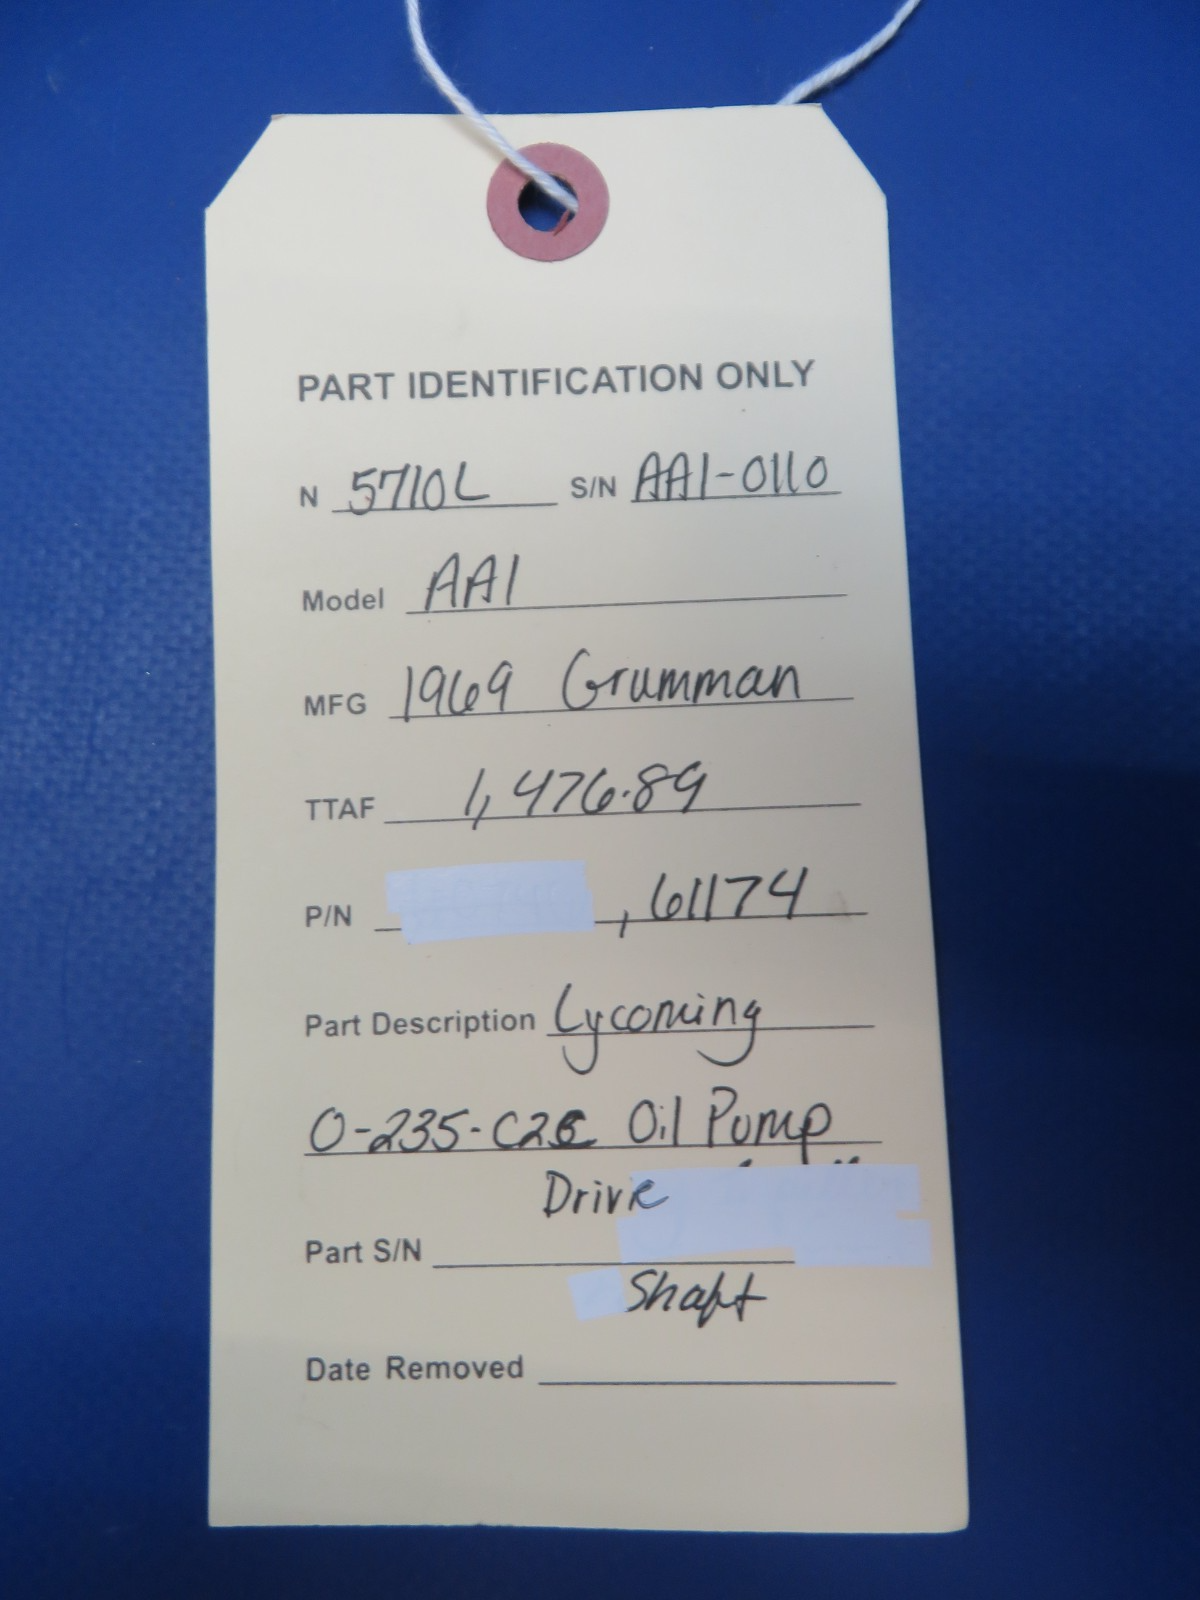 PART IDENTIFICATION ONLY
N 5710L S/N AA1-0110
Model AA1
MFG 1969 Grumman
TTAF 1,476.89
P/N , 61174
Part Description Lycoming
O-235-C2C Oil Pump
Drive
Part S/N
Shaft
Date Removed